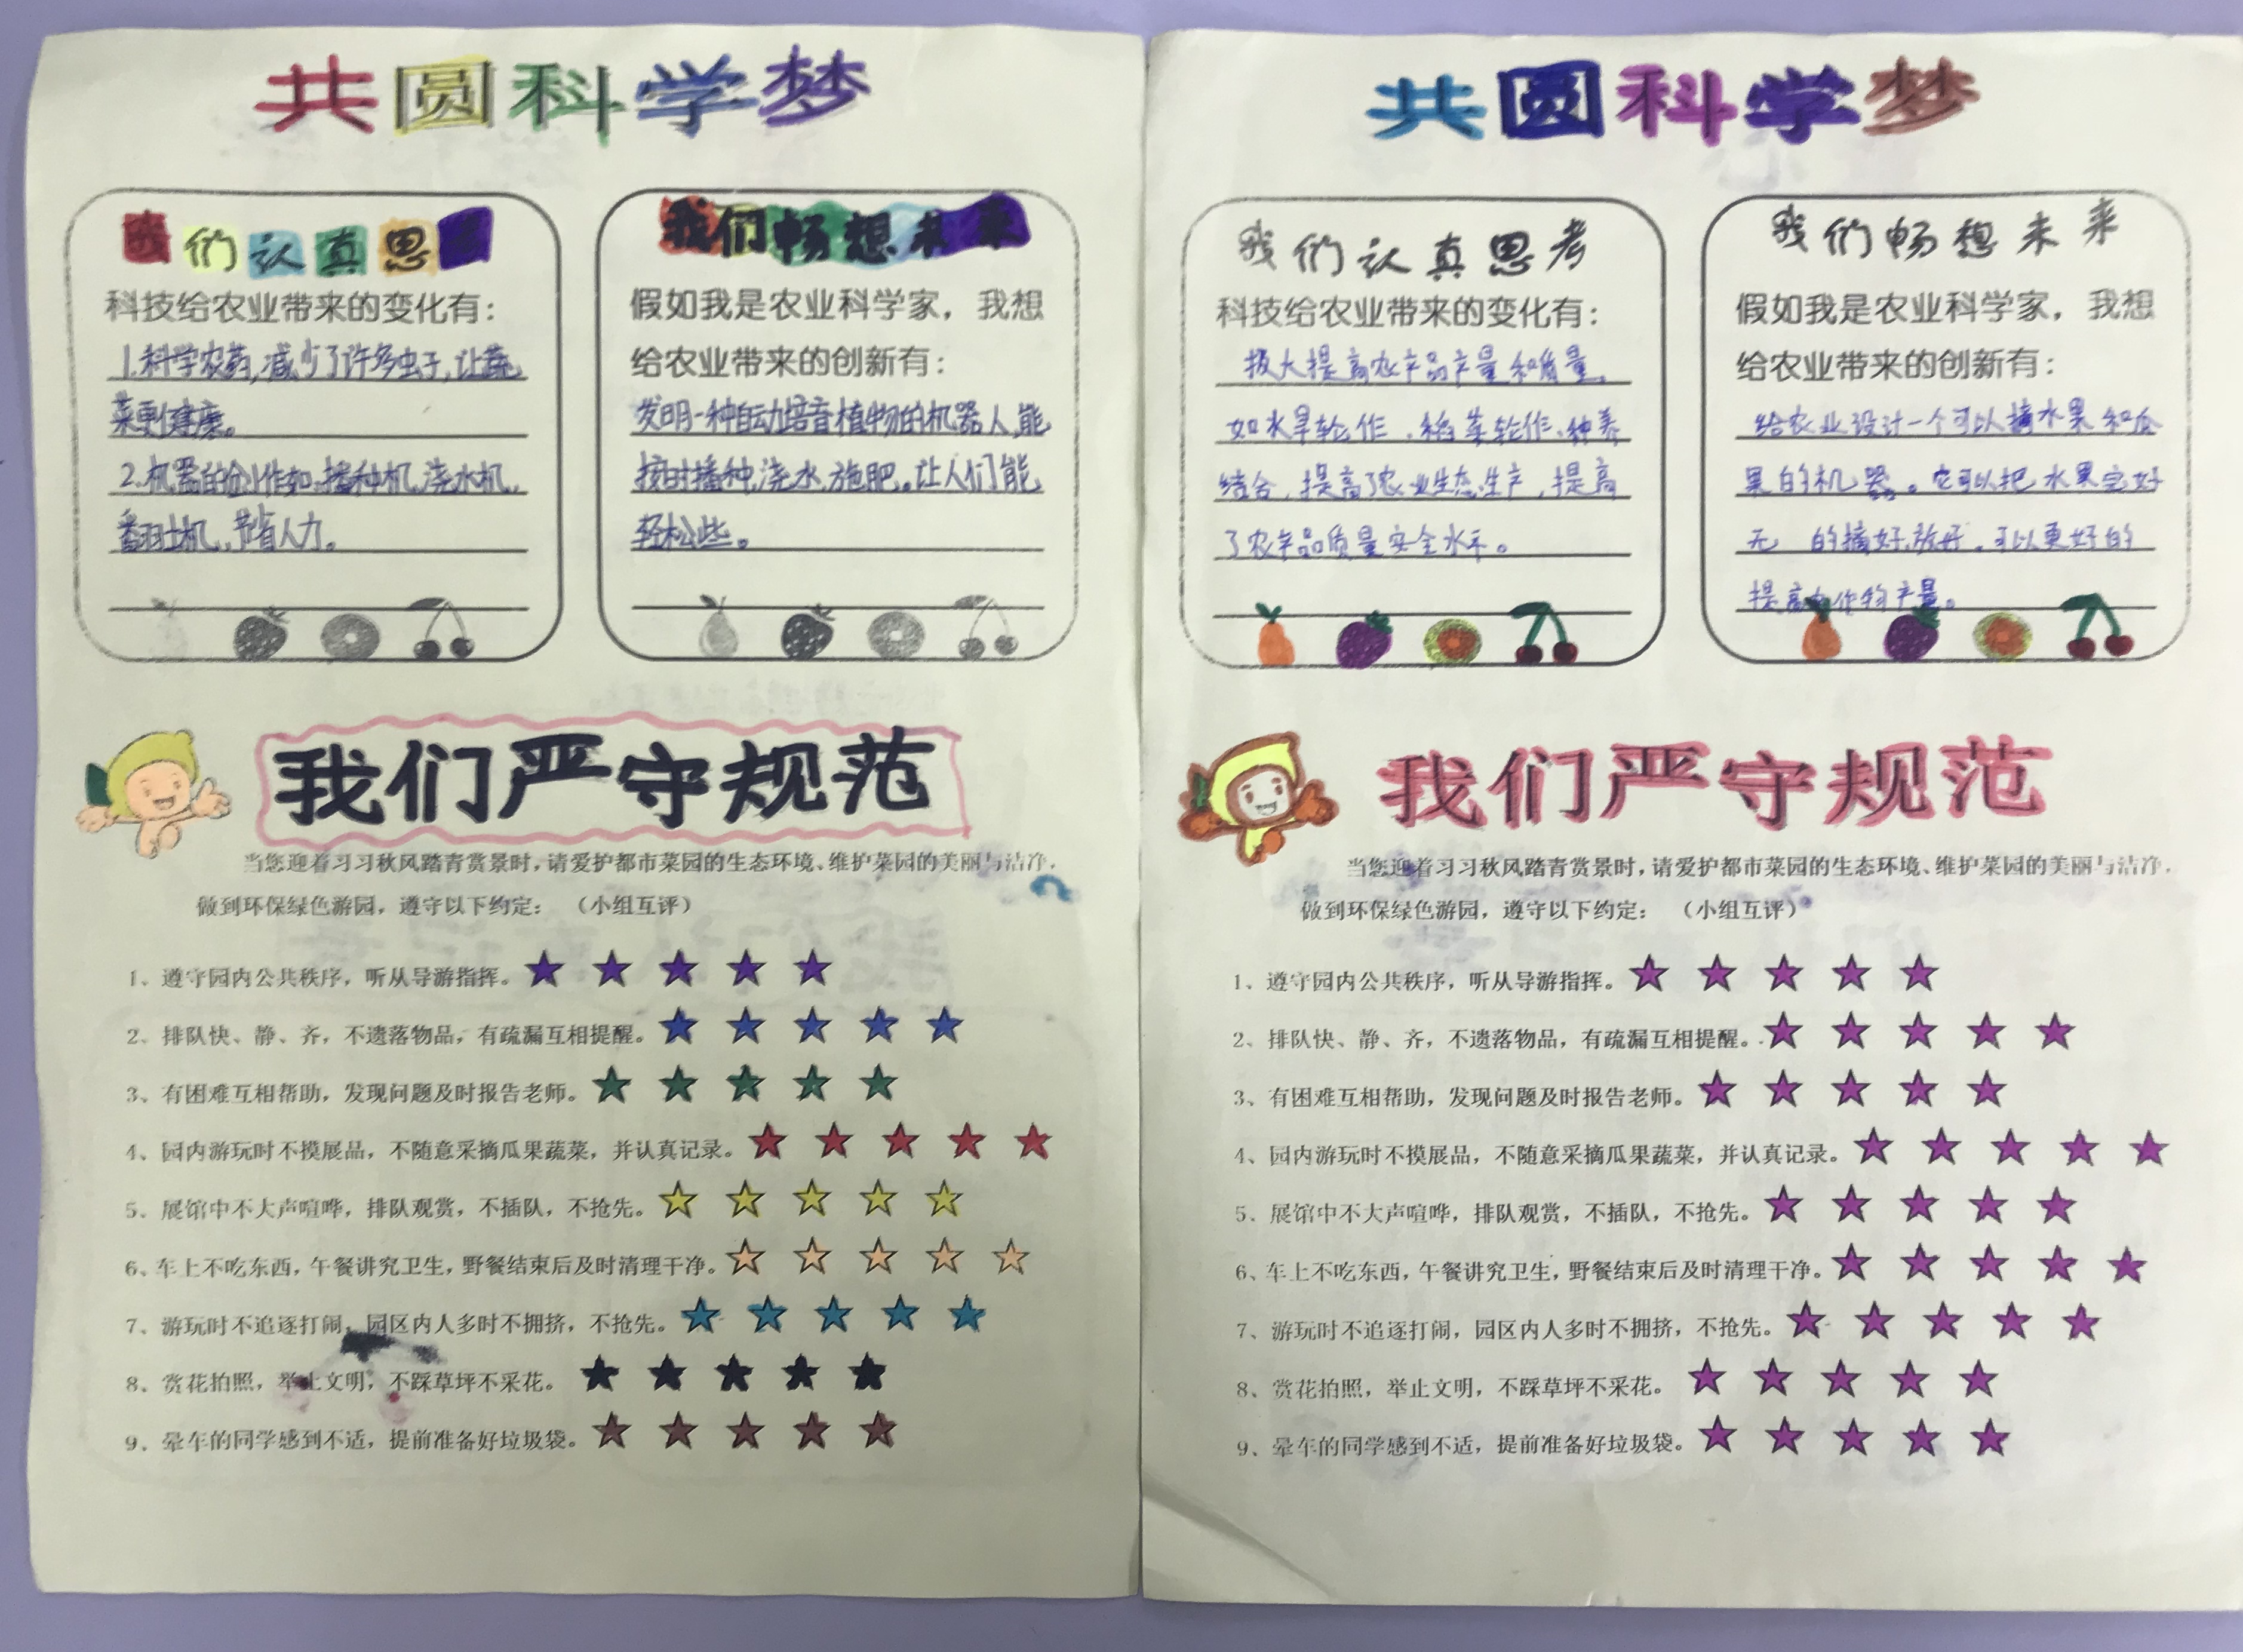 共圆科学梦
我们认真思
科技给农业带来的变化有：
1.科学农药,减少了许多虫子,让蔬
菜更健康。
2.机器的创作如:播种机,浇水机,
翻土机,节省人力。
我们畅想未来
假如我是农业科学家，我想
给农业带来的创新有：
发明一种自动培育植物的机器人,能
按时播种,浇水,施肥。让人们能
轻松些。
我们严守规范
当您迎着习习秋风踏青赏景时,请爱护都市菜园的生态环境、维护菜园的美丽与洁净,
做到环保绿色游园，遵守以下约定：（小组互评）
1、遵守园内公共秩序，听从导游指挥。
2、排队快、静、齐，不遗落物品，有疏漏互相提醒。
3、有困难互相帮助，发现问题及时报告老师。
4、园内游玩时不摸展品，不随意采摘瓜果蔬菜，并认真记录。
5、展馆中不大声喧哗，排队观赏，不插队，不抢先。
6、车上不吃东西，午餐讲究卫生，野餐结束后及时清理干净。
7、游玩时不追逐打闹，园区内人多时不拥挤，不抢先。
8、赏花拍照，举止文明，不踩草坪不采花。
9、晕车的同学感到不适，提前准备好垃圾袋。
共圆科学梦
我们认真思考
科技给农业带来的变化有：
极大提高农产品产量和质量。
如水旱轮作、稻菜轮作、种养
结合，提高了农业生态生产，提高
了农产品质量安全水平。
我们畅想未来
假如我是农业科学家，我想
给农业带来的创新有：
给农业设计一个可以摘水果和瓜
果的机器。它可以把水果完好
无 的摘好,放好。可以更好的
提高 作物产量。
我们严守规范
当您迎着习习秋风踏青赏景时,请爱护都市菜园的生态环境、维护菜园的美丽与洁净,
做到环保绿色游园，遵守以下约定：（小组互评）
1、遵守园内公共秩序，听从导游指挥。
2、排队快、静、齐，不遗落物品，有疏漏互相提醒。
3、有困难互相帮助，发现问题及时报告老师。
4、园内游玩时不摸展品，不随意采摘瓜果蔬菜，并认真记录。
5、展馆中不大声喧哗，排队观赏，不插队，不抢先。
6、车上不吃东西，午餐讲究卫生，野餐结束后及时清理干净。
7、游玩时不追逐打闹，园区内人多时不拥挤，不抢先。
8、赏花拍照，举止文明，不踩草坪不采花。
9、晕车的同学感到不适，提前准备好垃圾袋。